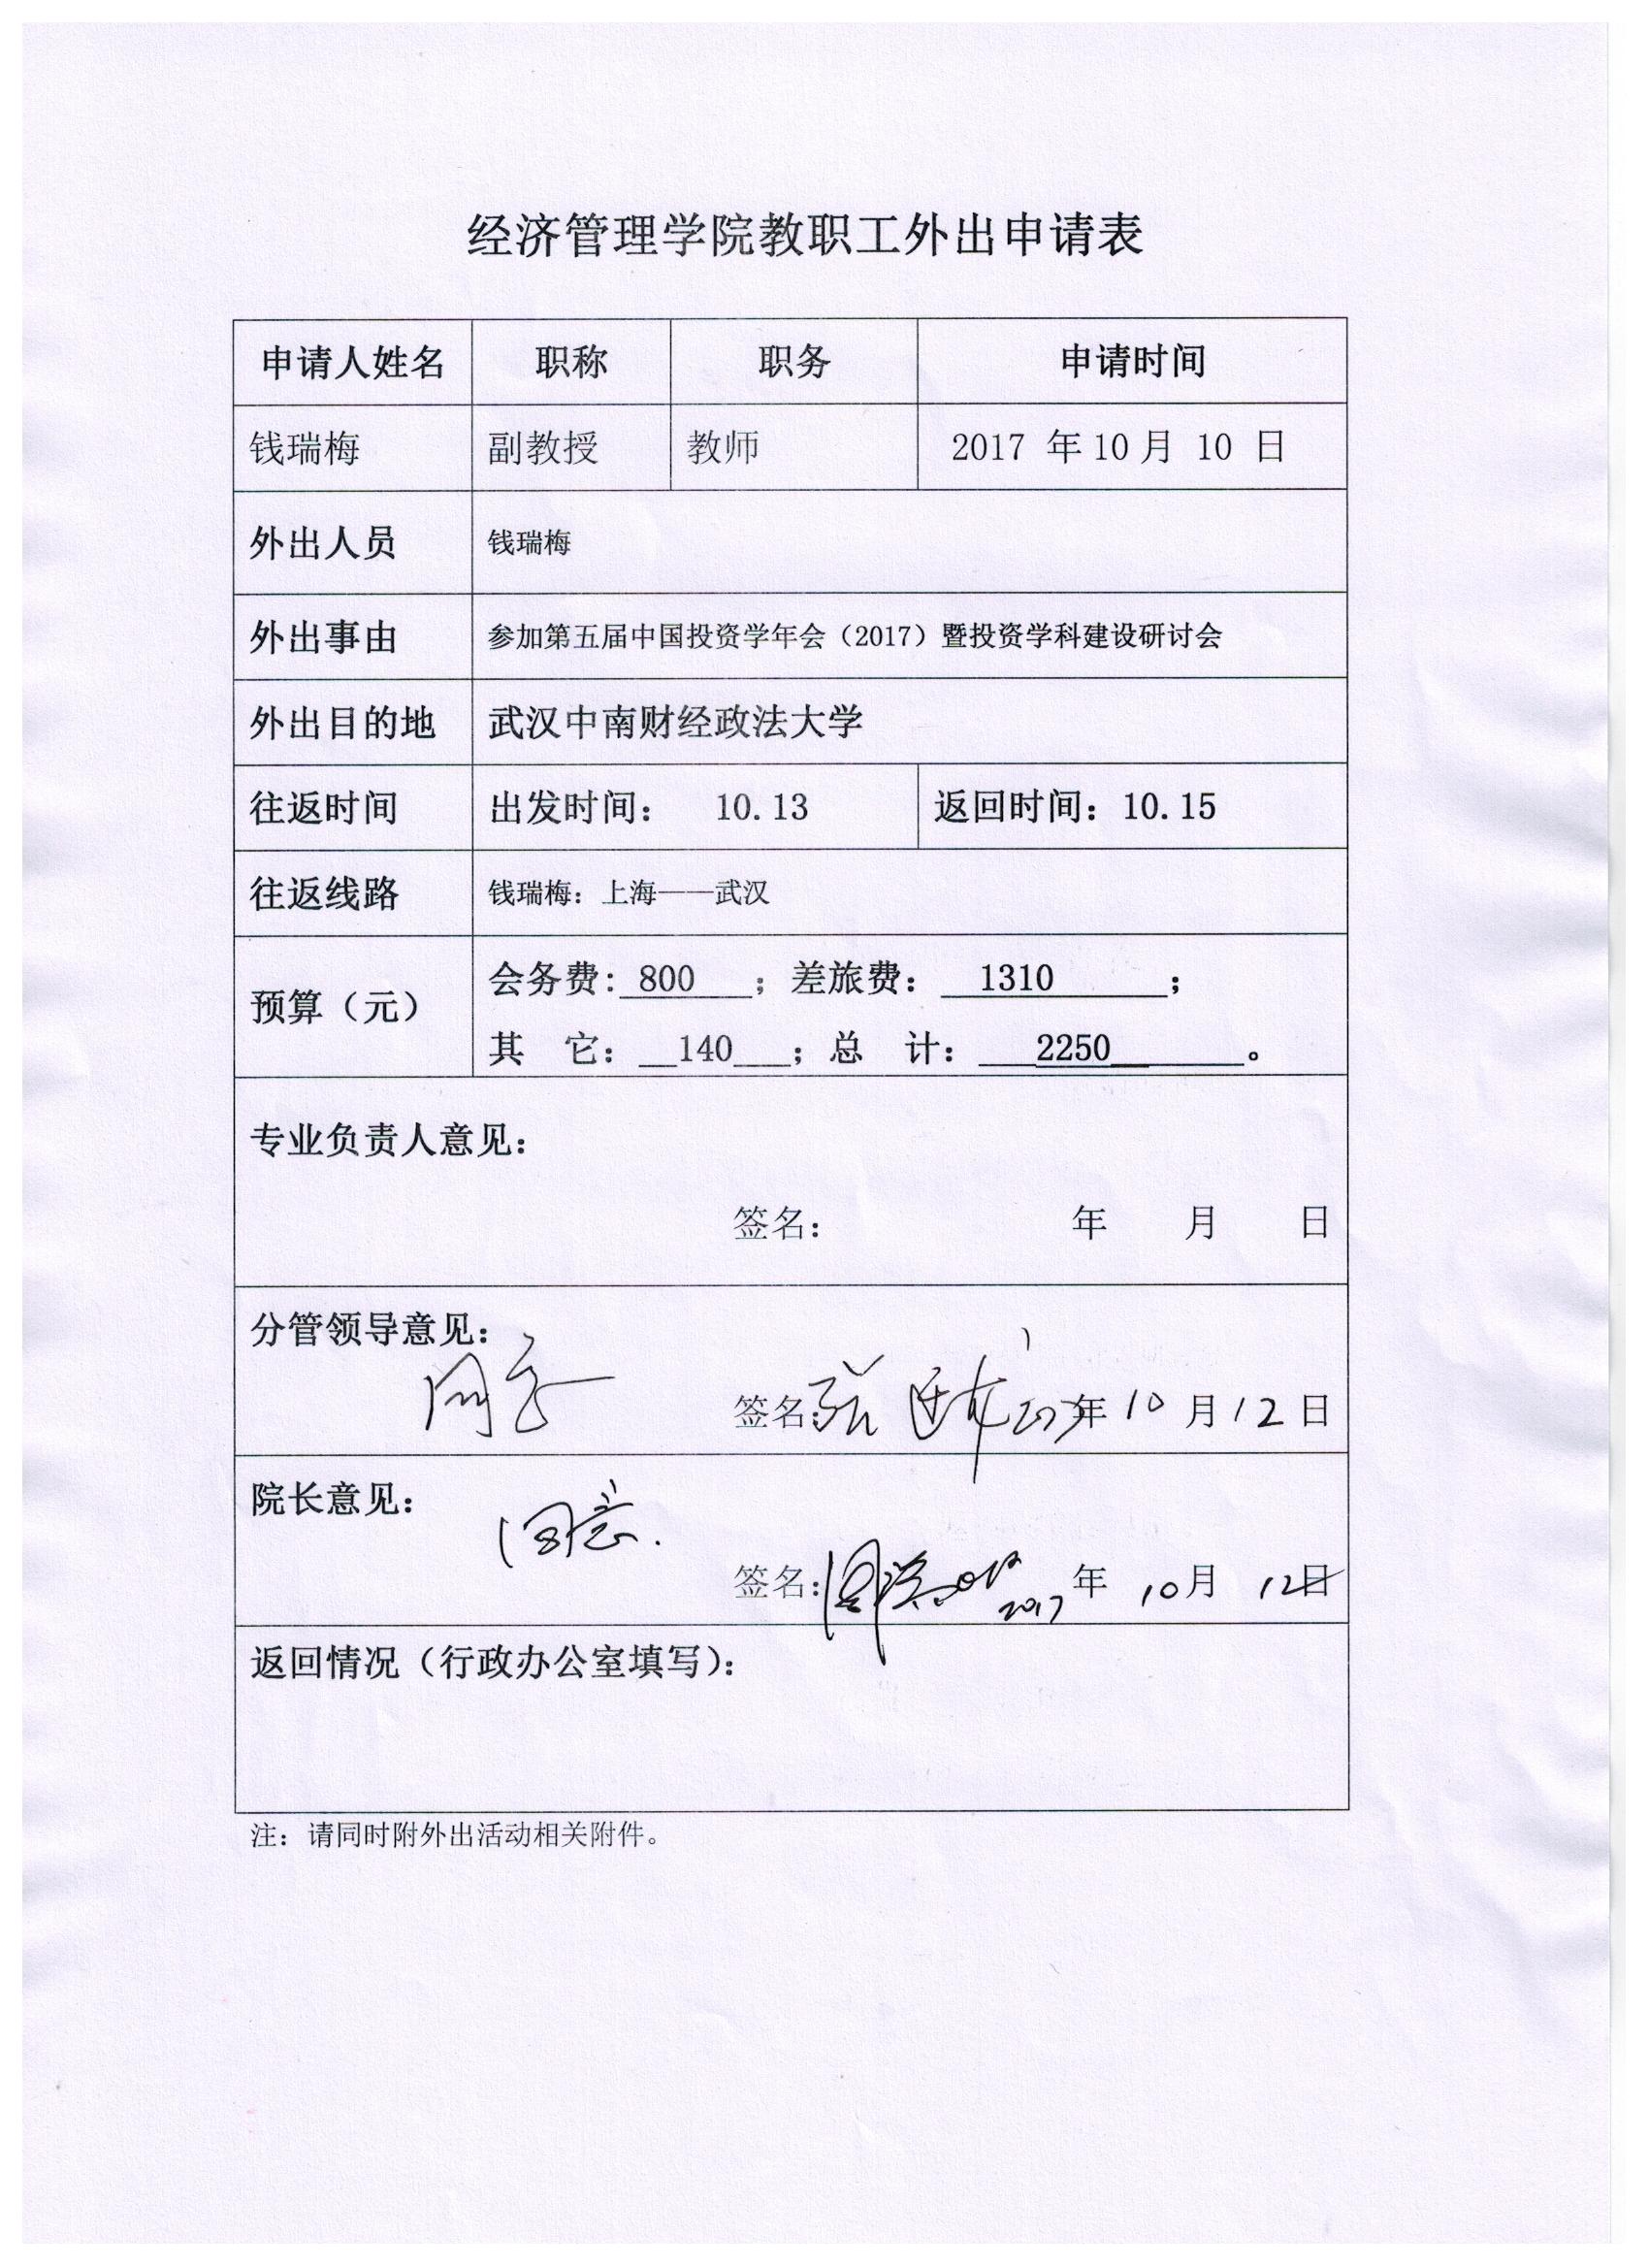 经济管理学院教职工外出申请表
申请人姓名 职称 职务 申请时间
钱瑞梅 副教授 教师 2017 年 10 月 10 日
外出人员 钱瑞梅
外出事由 参加第五届中国投资学年会（2017）暨投资学科建设研讨会
外出目的地 武汉中南财经政法大学
往返时间 出发时间： 10.13 返回时间：10.15
往返线路 钱瑞梅：上海——武汉
预算（元） 会务费：800；差旅费：1310；
其 它：140；总 计：2250。
专业负责人意见：
签名： 年 月 日
分管领导意见：
同意
签名：张 年 10 月 12 日
院长意见：
同意.
签名： 2017 年 10 月 12 日
返回情况（行政办公室填写）：
注：请同时附外出活动相关附件。